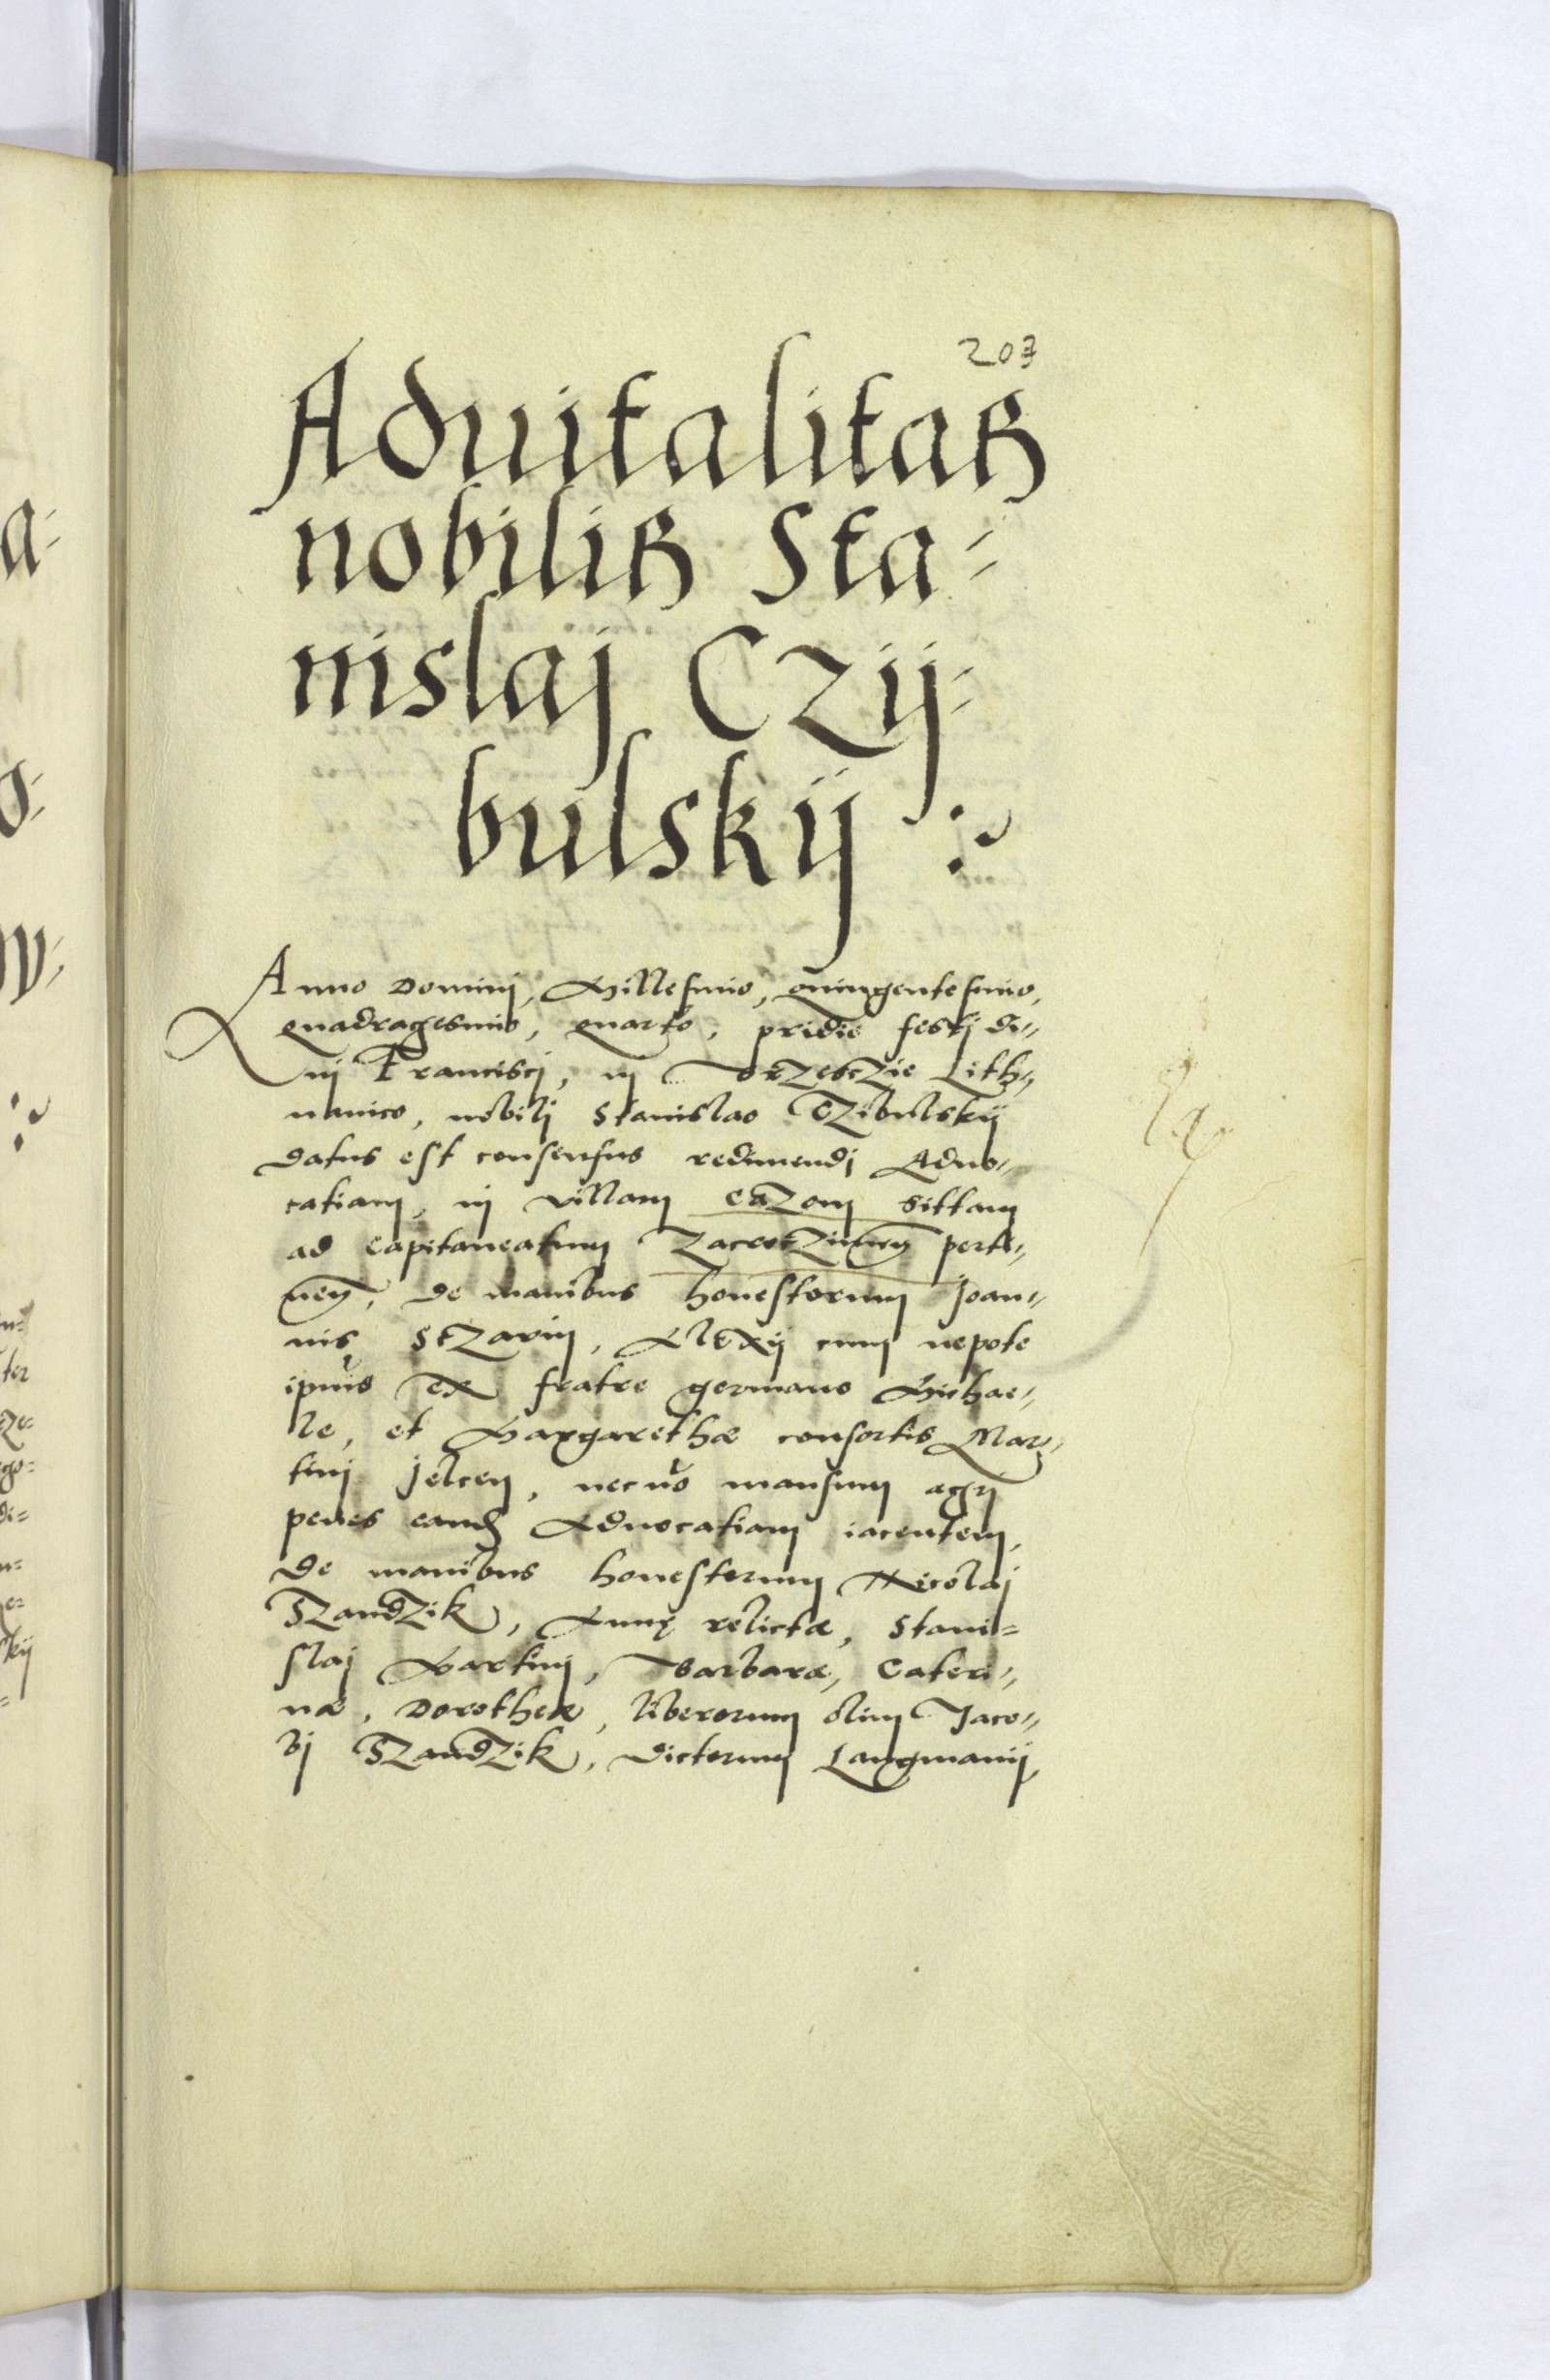 203
Aduitalitas
nobilis Sta-
nislaj Czij-
bulskij
Anno Domini, Millesimo, quingentesimo,
quadragesimo, quarto, pridie festj di-
ui Francisci, in Brzesczie Lith-
uanico, nobilj Stanislao Czibulskij
datus est consensus redimendj Aduo-
catiam, in villam Cazom sittam
ad Capitaneatum perti-
neñ, de manibus honestorum Joan-
nis Sczarin, Alexij cum nepote
ipius ex fratre germano Michae-
le, et Margarethæ consortis Mar-
tinj Jelcen, necno mansum agrj
penes eand Aduocatiam iacentem,
de manibus honestorum Nicolaj
Szandzik, Annę relictæ, Stani-
slaj Martinj, Barbaræ, Cateri-
næ, Dorotheæ, liberorum olim Jaco-
bj Szandzik, dictorum Langmanij,
a-
o-
w-